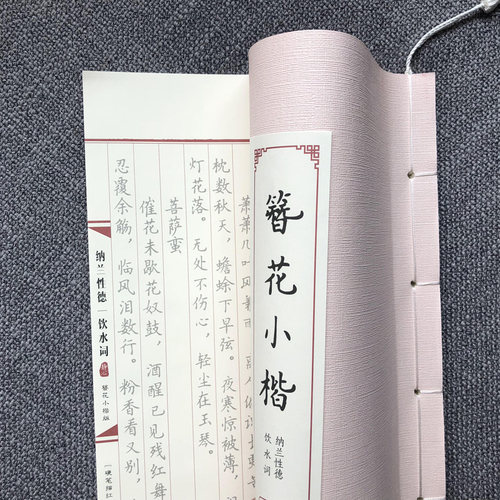 簪花小楷
纳兰性德
饮水词
萧萧几
枕数秋天，蟾蜍下早弦。夜寒惊被薄，
灯花落。无处不伤心，轻尘在玉琴。
菩萨蛮
催花未歇花奴鼓，酒醒已见残红舞
忍覆余觞，临风泪数行。粉香看又别，
纳兰性德—饮水词
簪花小楷版
硬笔描红